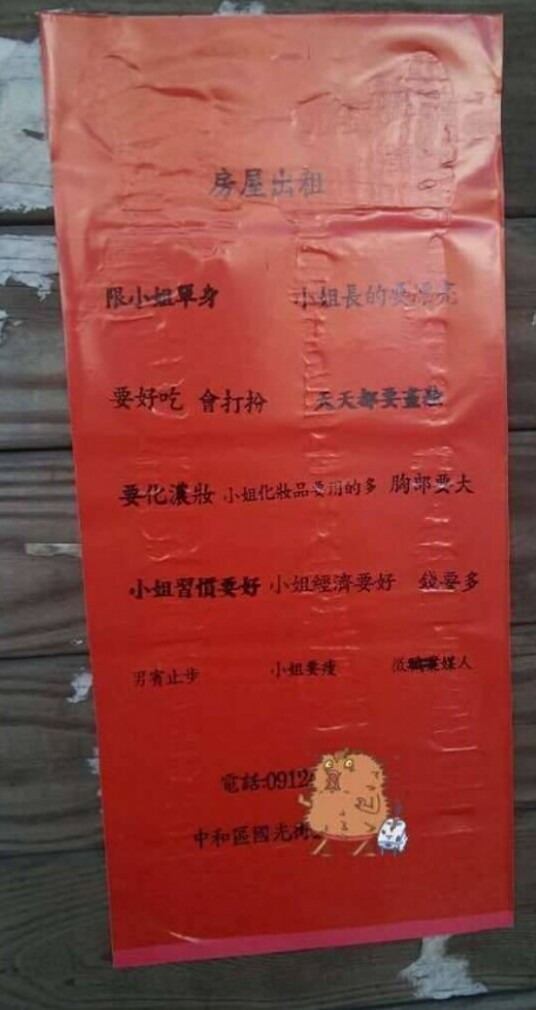 房屋出租
限小姐單身 小姐長的要漂亮
要好吃 會打扮 天天都要畫妝
要化濃妝 小姐化妝品要用的多 胸部要大
小姐習慣要好 小姐經濟要好 錢要多
男賓止步 小姐要瘦 媒人
電話:0912
中和區國光